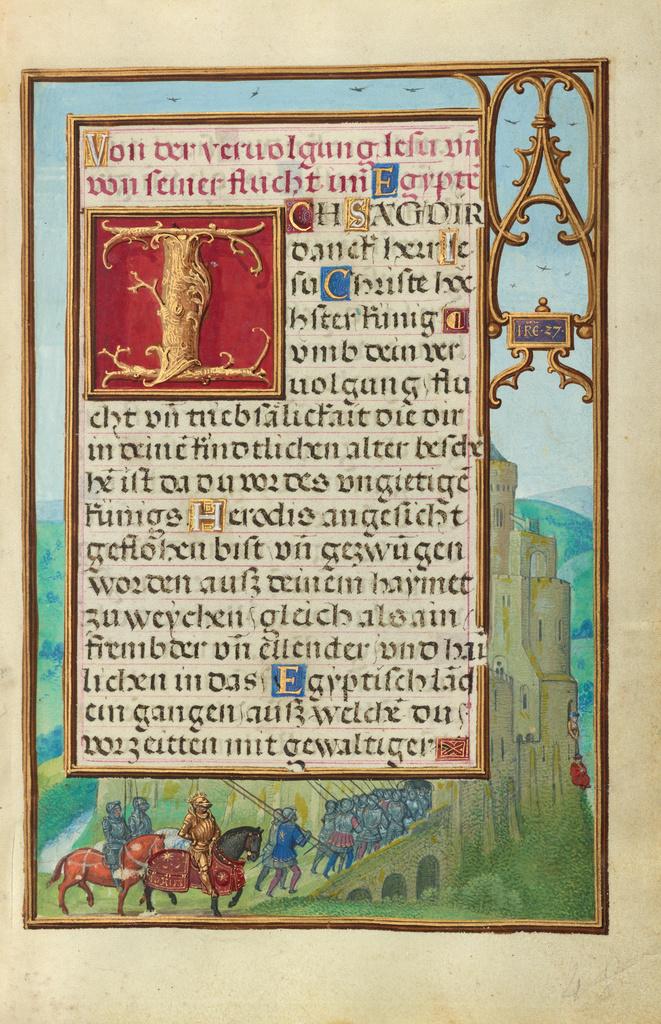 Von der veruolgung Iesu vn̄
von seiner flucht inn Egypte
ICH SAG DIR
danck herr Ie
su Christe hoc
hster kunig
vmb dein ver
uolgung flu
cht vn̄ triebsalickait die dir
in deinē kindtlichen alter besche
hē ist da du vor des vngietigē
kunigs Herodis angesicht
geflohen bist vn̄ gezwūgen
worden ausz deinem haymet
zu weychen gleich als ain
frembder vn̄ ellender vnd hai
lichen in das Egyptisch lād
ein gangen ausz welchē du
vorzeitten mit gewaltiger